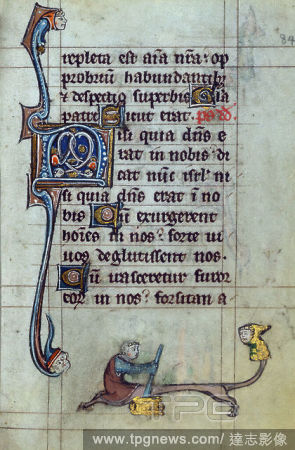 84
repleta est aīa nr̄a: op
probriū habundantib;
& despectio superbis Gla
patri Sicut erat. ps. d̄d
Nisi quia dn̄s e
rat in nobis di
cat nūc isrl' ni
si quia dn̄s erat ī no
bis Cū exurgerent
hoīes in nos: forte ui
uos deglutissent nos.
Cū irasceretur furor
eor̄ in nos: forsitan a
www.tpgnews.com / 達志影像